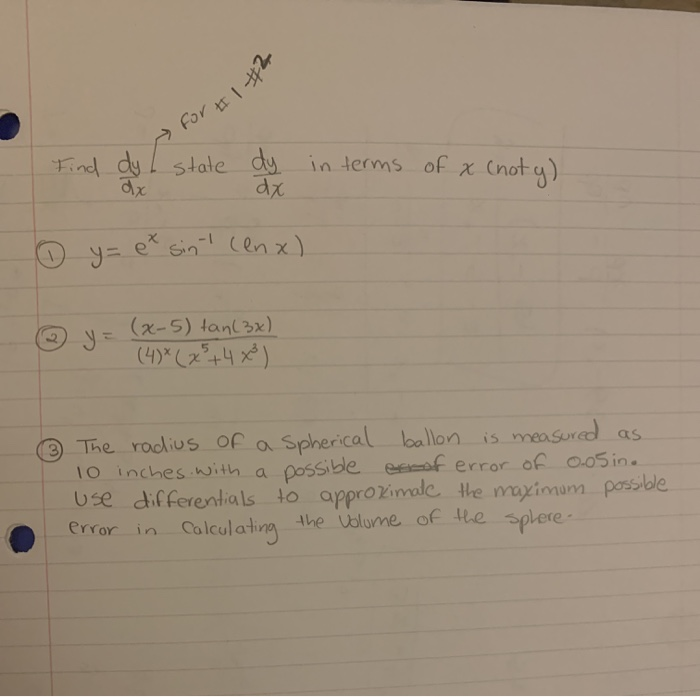 For #1 #2
Find dy/dx state dy/dx in terms of x (not y)
① y = e^x sin^-1 (ln x)
② y = (x-5) tan(3x) / (4)^x (x^5+4x^3)
③ The radius of a spherical ballon is measured as
10 inches with a possible error of 0.05in.
Use differentials to approximate the maximum possible
error in calculating the volume of the sphere.